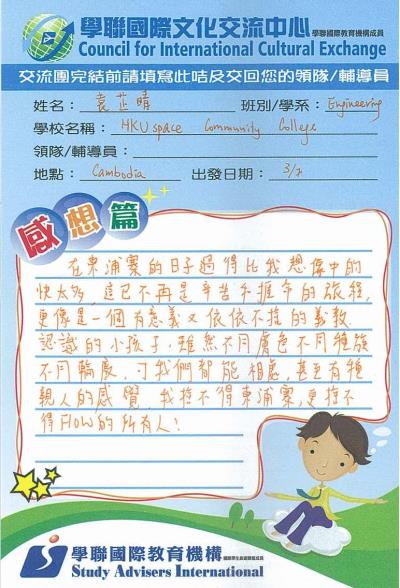 學聯國際文化交流中心 學聯國際教育機構成員
Council for International Cultural Exchange
交流團完結前請填寫此咭及交回您的領隊/輔導員
姓名：袁芷晴 班別/學系：Engineering
學校名稱：HKU space Community College
領隊/輔導員：
地點：Cambodia 出發日期：3/7
感想篇
在柬浦寨的日子過得比我想像中的
快太多,這已不再是辛苦千捱千的旅程,
更像是一個有意義又依依不捨的義教.
認識的小孩子,雖然不同膚色不同種族
不同輪廓,可我們都能相處,甚至有種
親人的感覺.我捨不得柬浦寨,更捨不
得FLOW的所有人!
學聯國際教育機構
Study Advisers International